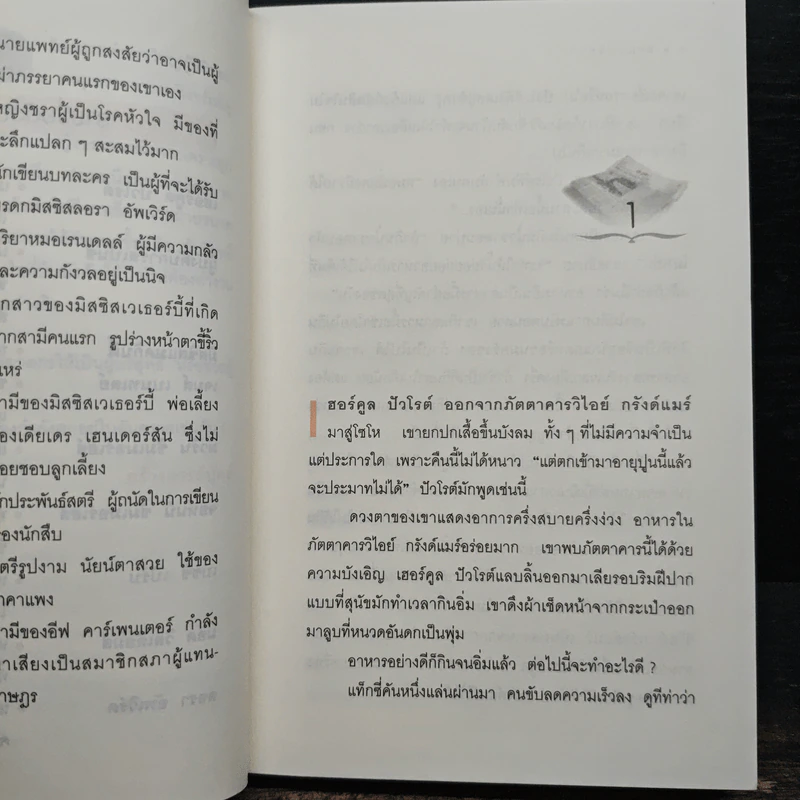 นายแพทย์ผู้ถูกสงสัยว่าอาจเป็นผู้
ฆ่าภรรยาคนแรกของเขาเอง
หญิงชราผู้เป็นโรคหัวใจ มีของที่
ระลึกแปลก ๆ สะสมไว้มาก
นักเขียนบทละคร เป็นผู้ที่จะได้รับ
มรดกมิสซิสลอรา อัพเวิร์ด
ภริยาหมอเรนเดลล์ ผู้มีความกลัว
และความกังวลอยู่เป็นนิจ
ลูกสาวของมิสซิสเวเธอร์บี้ที่เกิด
จากสามีคนแรก รูปร่างหน้าตาขี้ริ้ว
ขี้เหร่
สามีของมิสซิสเวเธอร์บี้ พ่อเลี้ยง
ของเดียเดร เฮนเดอร์สัน ซึ่งไม่
ค่อยชอบลูกเลี้ยง
นักประพันธ์สตรี ผู้ถนัดในการเขียน
ของนักสืบ
สตรีรูปงาม นัยน์ตาสวย ใช้ของ
ราคาแพง
สามีของอีฟ คาร์เพนเตอร์ กำลัง
หาเสียงเป็นสมาชิกสภาผู้แทน-
ราษฎร
1
เฮอร์คูล ปัวโรต์ ออกจากภัตตาคารวิไอย์ กรังด์แมร์
มาสู่โซโห เขายกปกเสื้อขึ้นบังลม ทั้ง ๆ ที่ไม่มีความจำเป็น
แต่ประการใด เพราะคืนนี้ไม่ได้หนาว “แต่ตกเข้ามาอายุปูนนี้แล้ว
จะประมาทไม่ได้” ปัวโรต์มักพูดเช่นนี้
ดวงตาของเขาแสดงอาการครึ่งสบายครึ่งง่วง อาหารใน
ภัตตาคารวิไอย์ กรังด์แมร์อร่อยมาก เขาพบภัตตาคารนี้ได้ด้วย
ความบังเอิญ เฮอร์คูล ปัวโรต์แลบลิ้นออกมาเลียรอบริมฝีปาก
แบบที่สุนัขมักทำเวลากินอิ่ม เขาดึงผ้าเช็ดหน้าจากกระเป๋าออก
มาลูบที่หนวดอันดกเป็นพุ่ม
อาหารอย่างดีก็กินจนอิ่มแล้ว ต่อไปนี้จะทำอะไรดี ?
แท็กซี่คันหนึ่งแล่นผ่านมา คนขับลดความเร็วลง ดูทีท่าว่า